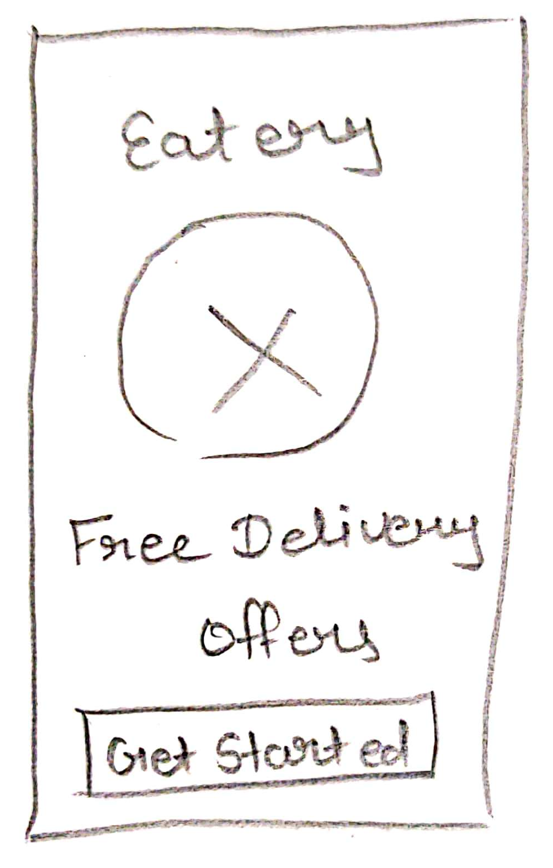 Eatery
Free Delivery
Offers
Get Started